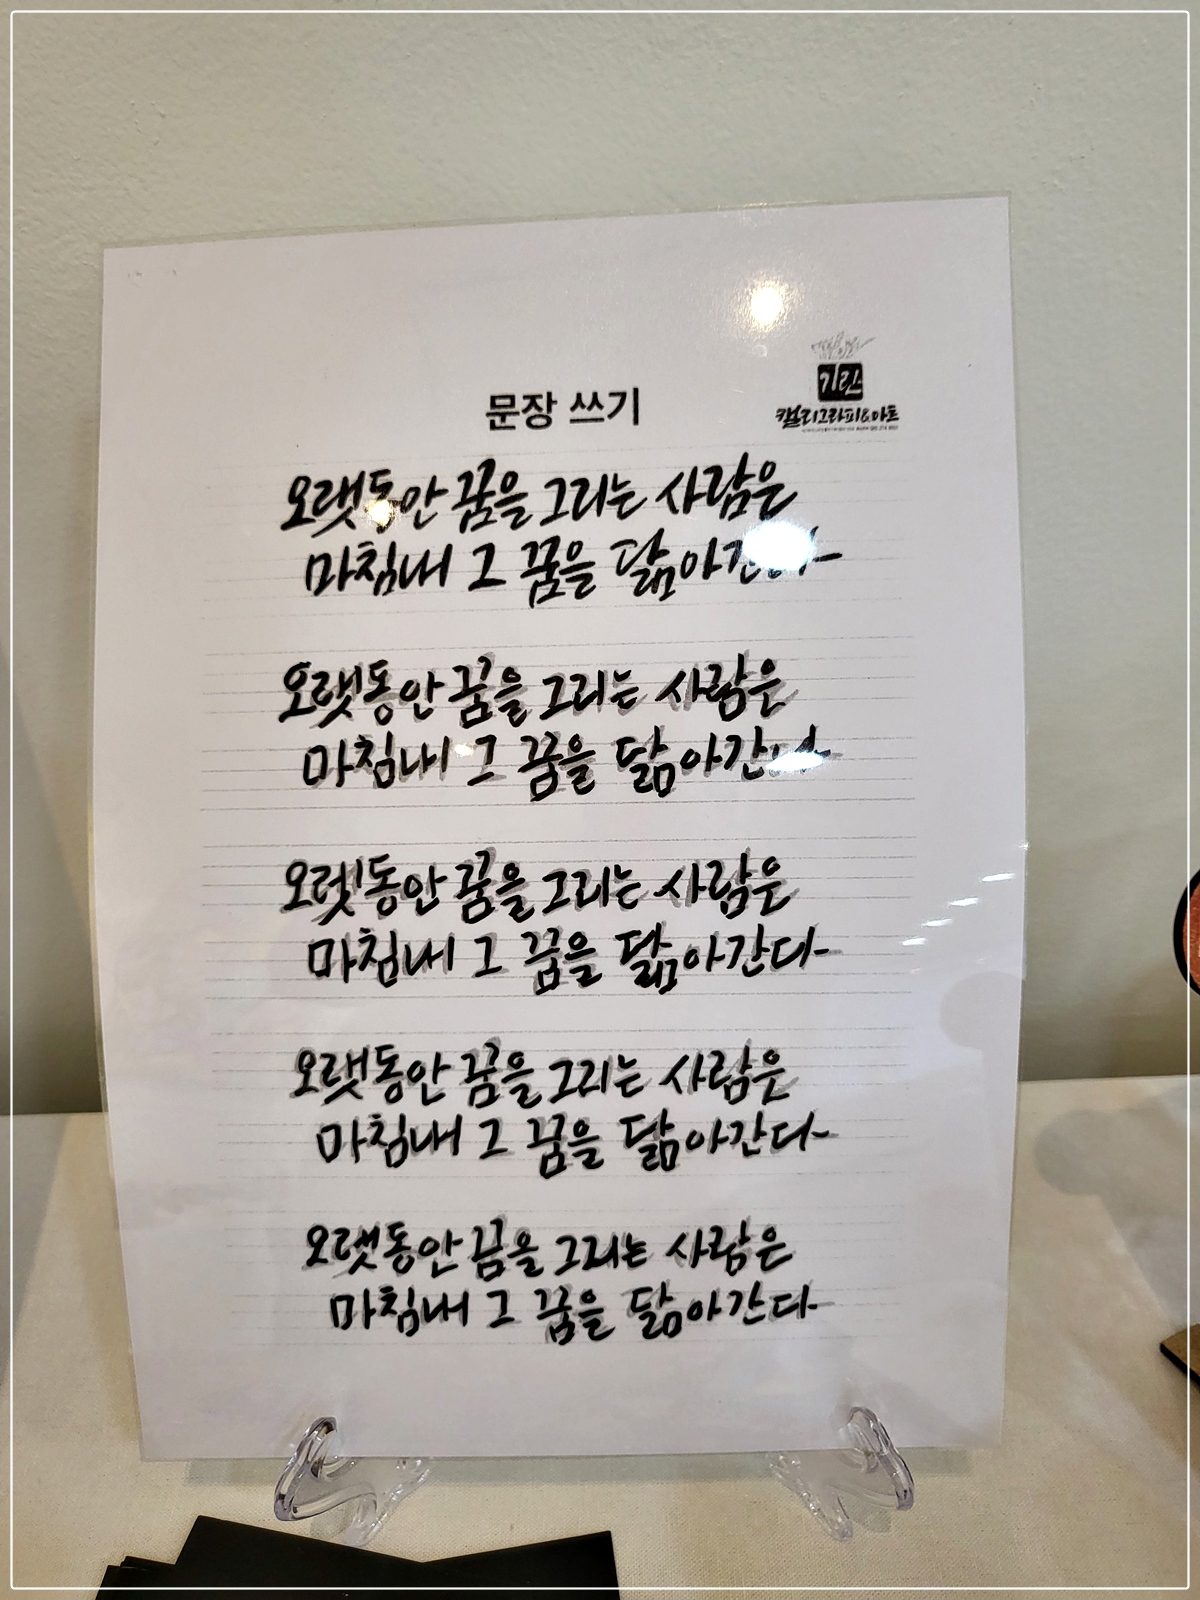 기린
캘리그라피&아트
문장 쓰기
오랫동안 꿈을 그리는 사람은
마침내 그 꿈을 닮아간다
오랫동안 꿈을 그리는 사람은
마침내 그 꿈을 닮아간다
오랫동안 꿈을 그리는 사람은
마침내 그 꿈을 닮아간다
오랫동안 꿈을 그리는 사람은
마침내 그 꿈을 닮아간다
오랫동안 꿈을 그리는 사람은
마침내 그 꿈을 닮아간다